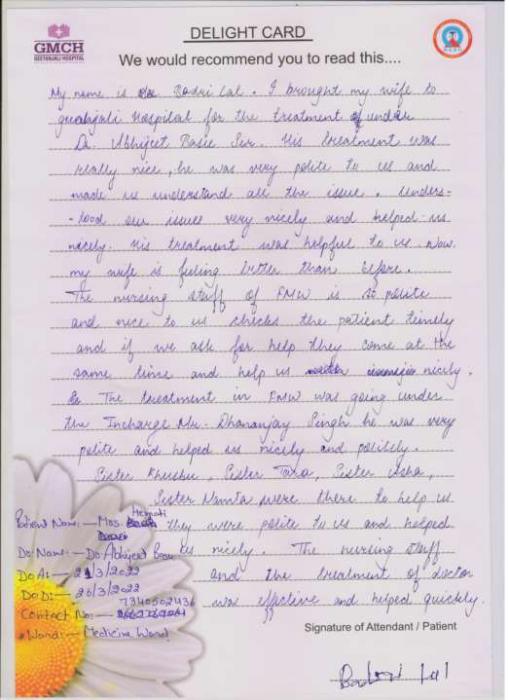 GMCH
GEETANJALI HOSPITAL
DELIGHT CARD
We would recommend you to read this....
My name is Badri Lal. I brought my wife to
geetanjali Hospital for the treatment of under
Dr. Abhijeet Basie Sir. His treatment was
really nice, he was very polite to us and
made us understand all the issue. Unders-
-tood our issues very nicely and helped us
nicely. His treatment was helpful to us now
my wife is feeling better than before.
The nursing staff of FMW is so polite
and nice to us checks the patient timely
and if we ask for help they come at the
same time and help us nicely.
The treatment in FMW was going under
the Incharge Mr. Dhananjay Singh he was very
polite and helped us nicely and politely.
Sister Khusbu, Sister Tara, Sister Usha,
Sister Namta were there to help us
they were polite to us and helped
us nicely. The nursing staff
and the treatment of doctor
was effective and helped quickly.
Patient Name:- Mrs.
Dr. Name:- Dr Abhijeet
DoA:- 21/3/2022
DoD:- 26/3/2022
7340502436
Contact No:-
Ward:- Medicine Ward
Signature of Attendant / Patient
Badri Lal